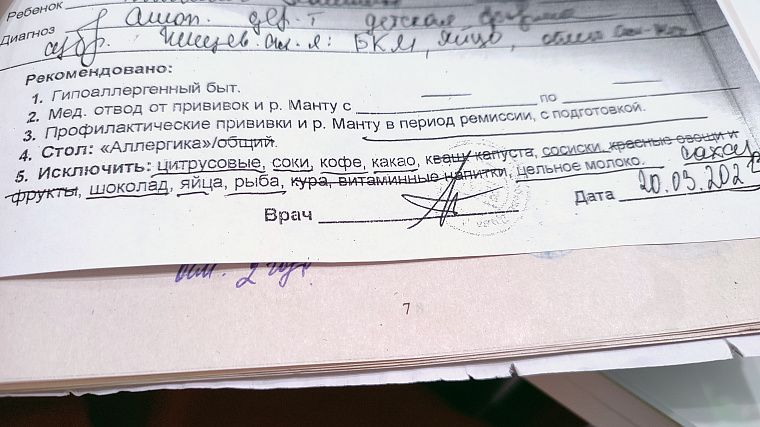 Ребенок
Диагноз Атоп. дер-т детская
обр. Пищев. ал-я: БКМ, яйцо,
Рекомендовано:
1. Гипоаллергенный быт.
2. Мед. отвод от прививок и р. Манту с по
3. Профилактические прививки и р. Манту в период ремиссии, с подготовкой.
4. Стол: «Аллергика»/общий.
5. Исключить: цитрусовые, соки, кофе, какао, квашу капуста, сосиски, красные овощи и
фрукты, шоколад, яйца, рыба, кура, витаминные напитки, цельное молоко. сахар
Врач Дата 20.03.202
7